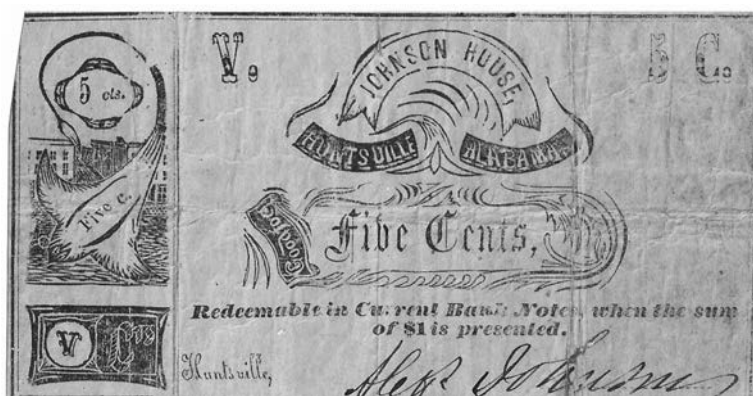 5 cts.
Five c.
V
Cts
V.
5 C.
JOHNSON HOUSE,
HUNTSVILLE ALABAMA.
Good for
Five Cents,
Redeemable in Current Bank Notes, when the sum
of $1 is presented.
Huntsville,
Alex Johnson